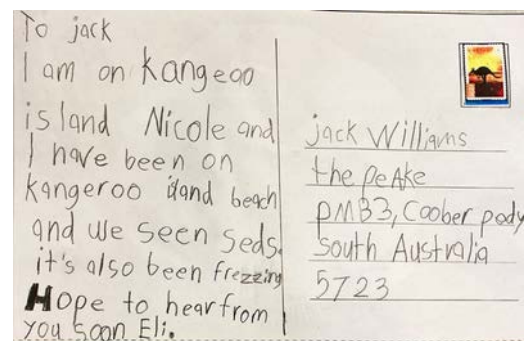 To jack
I am on kangeoo
island Nicole and
I have been on
kangeroo iland beach
and we seen seds.
it's also been frezzing
Hope to hear from
you soon Eli.
jack Williams
the peAke
PMB3, Coober pedy
South Australia
5723